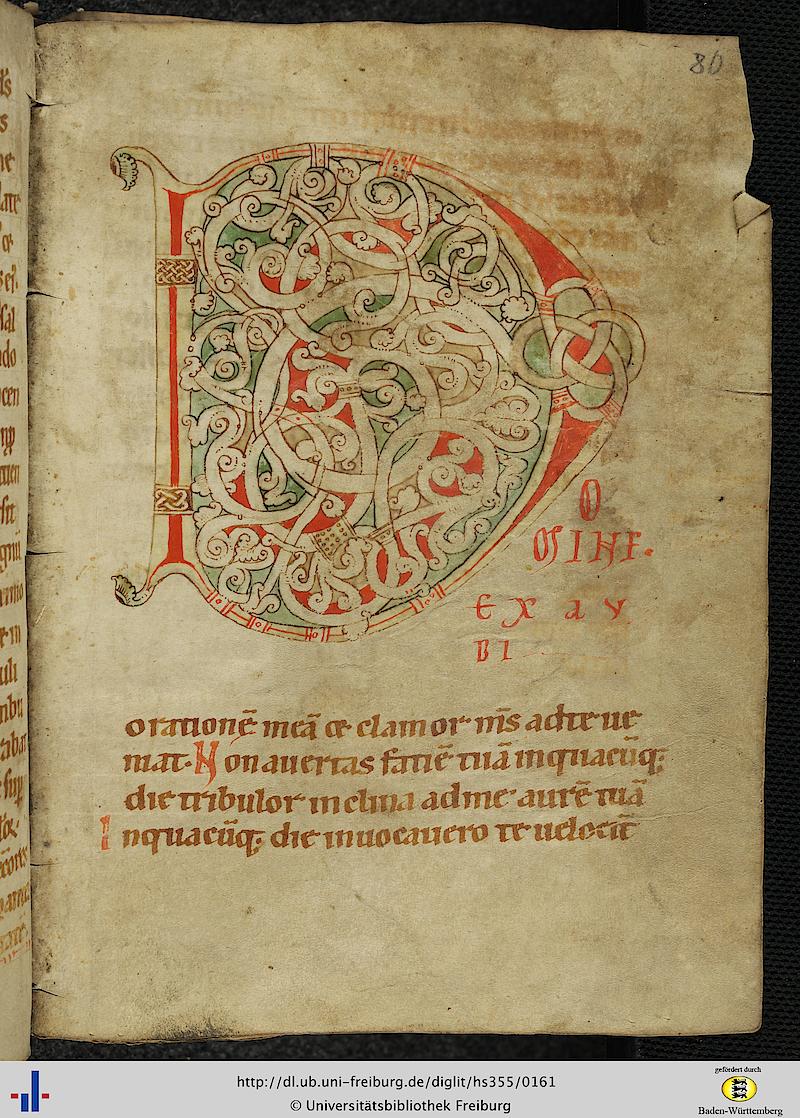 86
D
O
OSINE.
EXAV
DI
orationē meā & clamor m̄s adte ue
niat. Non auertas fatiē tuā inquacūq;
die tribulor inclina adme aurē tuā
Inquacūq; die inuocauero te uelocit̄
http://dl.ub.uni-freiburg.de/diglit/hs355/0161
© Universitätsbibliothek Freiburg
gefördert durch
Baden-Württemberg